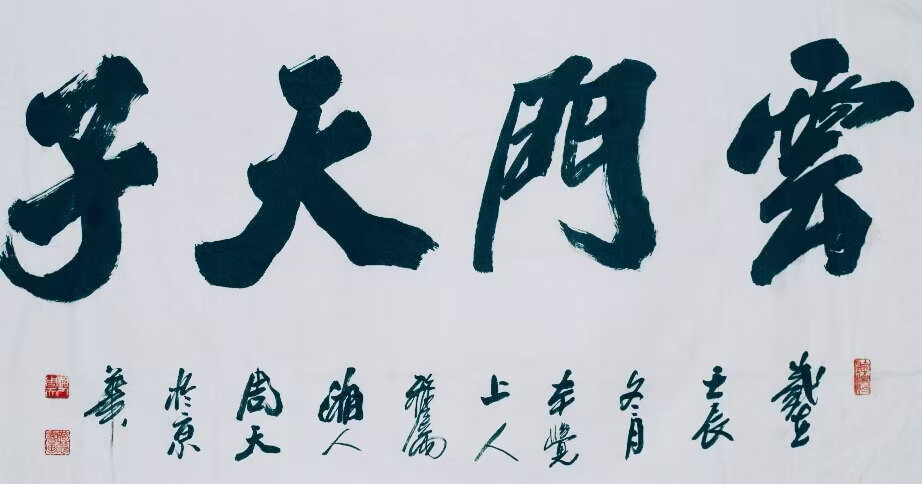 雲門天子
歲在
壬辰
冬月
本覺
上人
雅屬
湘人
周天
於京
華